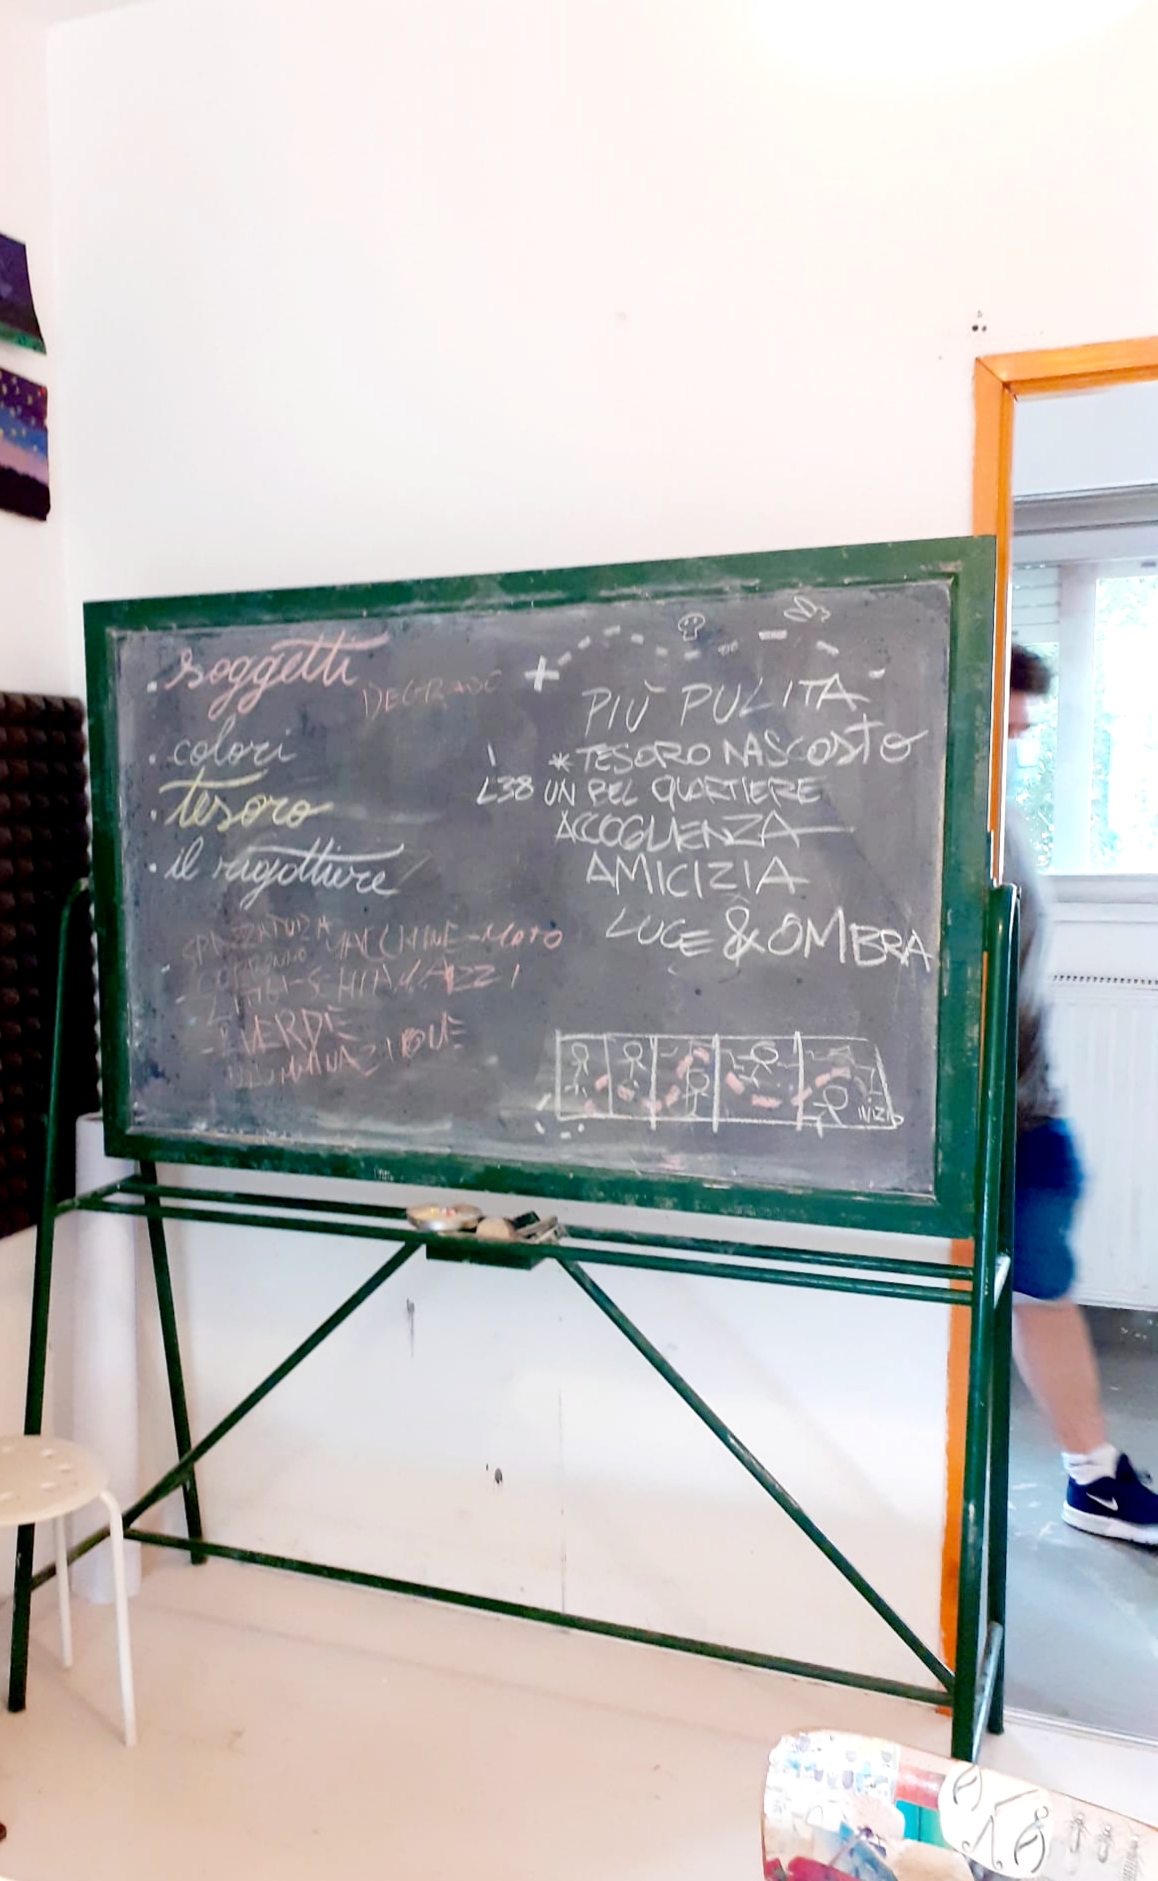 . soggetti
DEGRADO
. colori
. tesoro
. il rigattiere
SPAZZATURA
MACCHINE-MOTO
SCHIAMAZZI
VERDE
PIÙ PULITA
* TESORO NASCOSTO
L38 UN BEL QUARTIERE
ACCOGLIENZA
AMICIZIA
LUCE & OMBRA
INIZIO